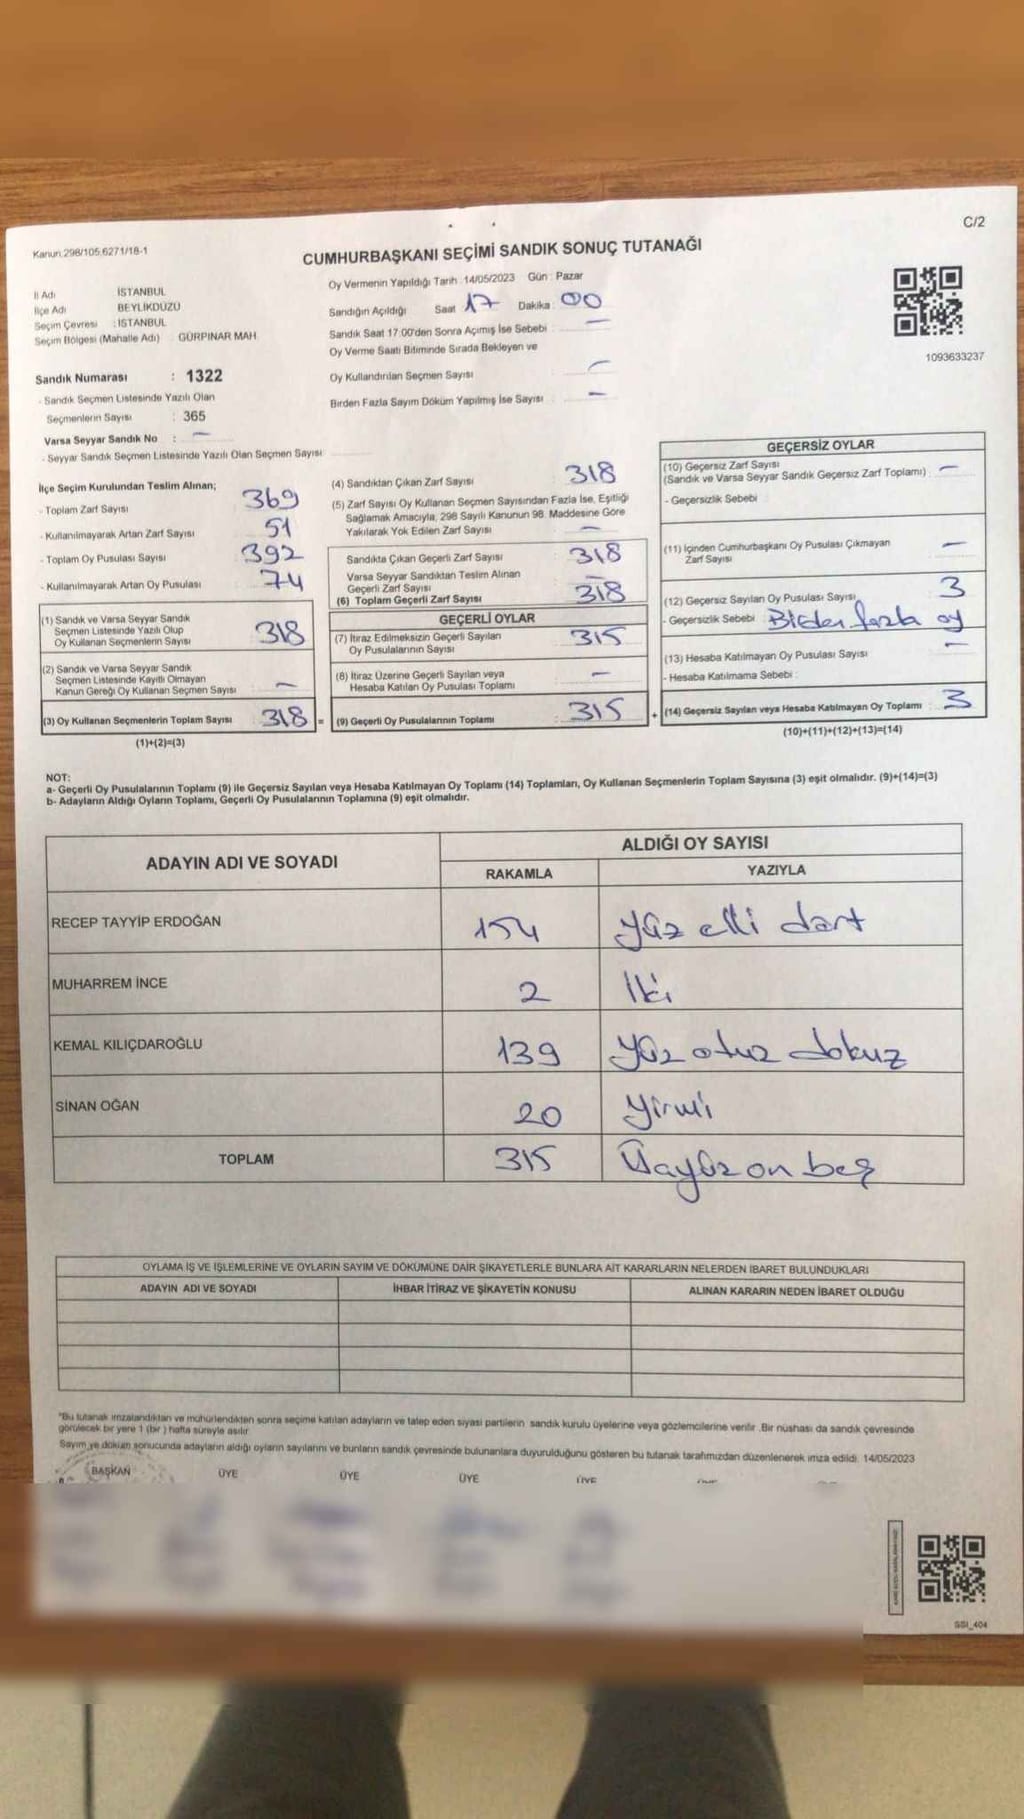 C/2
Kanun 298/105,6271/18-1
CUMHURBAŞKANI SEÇİMİ SANDIK SONUÇ TUTANAĞI
İl Adı İSTANBUL
İlçe Adı BEYLİKDÜZÜ
Seçim Çevresi : İSTANBUL
Seçim Bölgesi (Mahalle Adı) : GÜRPINAR MAH.
Sandık Numarası : 1322
- Sandık Seçmen Listesinde Yazılı Olan
Seçmenlerin Sayısı : 365
Varsa Seyyar Sandık No : —
- Seyyar Sandık Seçmen Listesinde Yazılı Olan Seçmen Sayısı:
Oy Vermenin Yapıldığı Tarih :14/05/2023 Gün : Pazar
Sandığın Açıldığı Saat 17 Dakika : 00
Sandık Saat 17:00'den Sonra Açılmış İse Sebebi : —
Oy Verme Saati Bitiminde Sırada Bekleyen ve
Oy Kullandırılan Seçmen Sayısı : —
Birden Fazla Sayım Döküm Yapılmış İse Sayısı : —
1093633237
İlçe Seçim Kurulundan Teslim Alınan;
- Toplam Zarf Sayısı 369
- Kullanılmayarak Artan Zarf Sayısı 51
- Toplam Oy Pusulası Sayısı 392
- Kullanılmayarak Artan Oy Pusulası 74
(1) Sandık ve Varsa Seyyar Sandık
Seçmen Listesinde Yazılı Olup
Oy Kullanan Seçmenlerin Sayısı 318
(2) Sandık ve Varsa Seyyar Sandık
Seçmen Listesinde Kayıtlı Olmayan
Kanun Gereği Oy Kullanan Seçmen Sayısı —
(3) Oy Kullanan Seçmenlerin Toplam Sayısı 318 =
(1)+(2)=(3)
(4) Sandıktan Çıkan Zarf Sayısı 318
(5) Zarf Sayısı Oy Kullanan Seçmen Sayısından Fazla İse, Eşitliği
Sağlamak Amacıyla, 298 Sayılı Kanunun 98. Maddesine Göre
Yakılarak Yok Edilen Zarf Sayısı —
Sandıkta Çıkan Geçerli Zarf Sayısı 318
Varsa Seyyar Sandıktan Teslim Alınan
Geçerli Zarf Sayısı —
(6) Toplam Geçerli Zarf Sayısı 318
GEÇERLİ OYLAR
(7) İtiraz Edilmeksizin Geçerli Sayılan
Oy Pusulalarının Sayısı 315
(8) İtiraz Üzerine Geçerli Sayılan veya
Hesaba Katılan Oy Pusulası Toplamı —
(9) Geçerli Oy Pusulalarının Toplamı 315 +
GEÇERSİZ OYLAR
(10) Geçersiz Zarf Sayısı
(Sandık ve Varsa Seyyar Sandık Geçersiz Zarf Toplamı) : —
- Geçersizlik Sebebi :
(11) İçinden Cumhurbaşkanı Oy Pusulası Çıkmayan
Zarf Sayısı —
(12) Geçersiz Sayılan Oy Pusulası Sayısı 3
- Geçersizlik Sebebi Birden fazla oy
(13) Hesaba Katılmayan Oy Pusulası Sayısı —
- Hesaba Katılmama Sebebi :
(14) Geçersiz Sayılan veya Hesaba Katılmayan Oy Toplamı 3
(10)+(11)+(12)+(13)=(14)
NOT:
a- Geçerli Oy Pusulalarının Toplamı (9) ile Geçersiz Sayılan veya Hesaba Katılmayan Oy Toplamı (14) Toplamları, Oy Kullanan Seçmenlerin Toplam Sayısına (3) eşit olmalıdır. (9)+(14)=(3)
b- Adayların Aldığı Oyların Toplamı, Geçerli Oy Pusulalarının Toplamına (9) eşit olmalıdır.
ADAYIN ADI VE SOYADI ALDIĞI OY SAYISI
RAKAMLA YAZIYLA
RECEP TAYYİP ERDOĞAN 154 yüz elli dört
MUHARREM İNCE 2 İki
KEMAL KILIÇDAROĞLU 139 yüz otuz dokuz
SİNAN OĞAN 20 yirmi
TOPLAM 315 Üçyüz on beş
OYLAMA İŞ VE İŞLEMLERİNE VE OYLARIN SAYIM VE DÖKÜMÜNE DAİR ŞİKAYETLERLE BUNLARA AİT KARARLARIN NELERDEN İBARET BULUNDUKLARI
ADAYIN ADI VE SOYADI İHBAR İTİRAZ VE ŞİKAYETİN KONUSU ALINAN KARARIN NEDEN İBARET OLDUĞU
"Bu tutanak imzalandıktan ve mühürlendikten sonra seçime katılan adayların ve talep eden siyasi partilerin sandık kurulu üyelerine veya gözlemcilerine verilir. Bir nüshası da sandık çevresinde
görülecek bir yere 1 (bir ) hafta süreyle asılır
Sayım ve döküm sonucunda adayların aldığı oyların sayılarını ve bunların sandık çevresinde bulunanlara duyurulduğunu gösteren bu tutanak tarafımızdan düzenlenerek imza edildi. 14/05/2023
BAŞKAN ÜYE ÜYE ÜYE ÜYE
SSI_404